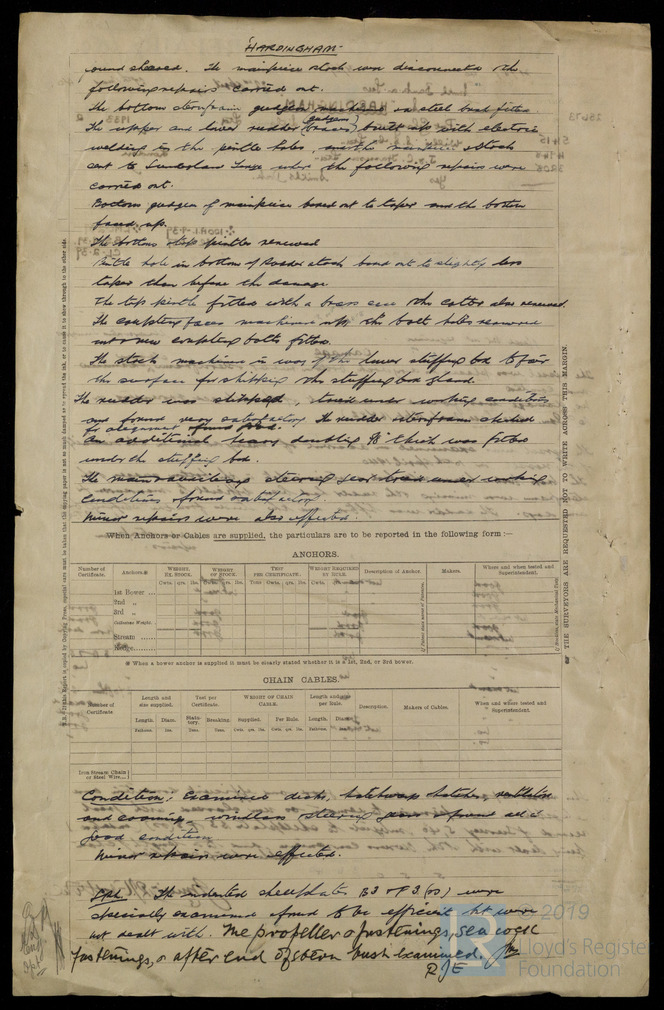 "HARDINGHAM"
found sheared. The mainpiece stock were disconnected & the
following repairs carried out.
The bottom sternframe gudgeon machined & a steel bush fitted
The upper and lower rudder (gudgeons) built up with electric
welding in the pintle holes, and the mainpiece & stock
sent to Sunderland Forge where the following repairs were
carried out.
Bottom gudgeon of mainpiece bored out to taper and the bottom
faced up.
The bottom pintles renewed
Pintle hole in bottom of Rudder stock bored out to slightly less
taper than before the damage
The top pintle fitted with a brass case the cotter also renewed.
The coupling faces machined up, the bolt holes reamered
and new coupling bolts fitted.
The stock machined in way of the lower stuffing box to fair
the surface for shipping the stuffing box gland.
The rudder was shipped, tried under working conditions
and found very satisfactory The rudder & sternframe checked
for alignment & found good.
An additional heavy doubling thick was fitted
under the stuffing box.
The main & auxiliary steering gear tried under working
conditions & found satisfactory
Minor repairs were also effected.
When Anchors or Cables are supplied, the particulars are to be reported in the following form :—
ANCHORS.
Number of Certificate. Anchors. WEIGHT, EX. STOCK. WEIGHT OF STOCK. TEST PER CERTIFICATE. WEIGHT REQUIRED BY RULE. Description of Anchor. Makers. Where and when tested and Superintendent.
1st Bower
2nd „
3rd „
Collective Weight.
Stream
Kedge
When a bower anchor is supplied it must be clearly stated whether it is a 1st, 2nd, or 3rd bower.
CHAIN CABLES.
Number of Certificate. Length and size supplied. Test per Certificate. WEIGHT OF CHAIN CABLE. Length and size per Rule. Description. Makers of Cables. When and where tested and Superintendent.
Length. Diam. Statutory. Breaking. Supplied. Per Rule. Length. Diam.
Iron Stream Chain or Steel Wire
Condition: Examined decks, hatchways hatches, ventilators
and coamings, windlass steering gear & found all in
good condition.
Minor repairs were effected.
The indented shell plates B3 & F3 (PS) were
specially examined & found to be efficient but were
not dealt with. The propeller & fastenings, sea cock
fastenings, & after end of stern bush examined.
RJE
THE SURVEYORS ARE REQUESTED NOT TO WRITE ACROSS THIS MARGIN.
© 2019
Lloyd's Register
Foundation